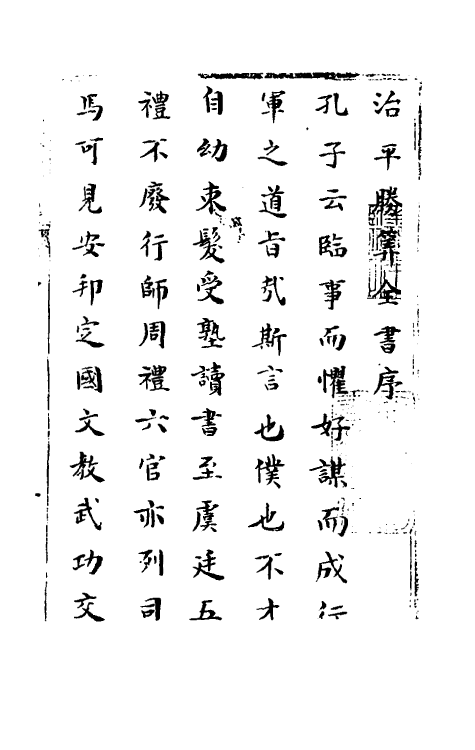 治平勝算全書序
孔子云臨事而懼好謀而成行
軍之道旨哉斯言也僕也不才
自幼束髮受塾讀書至虞廷五
禮不廢行師周禮六官亦列司
馬可見安邦定國文教武功交